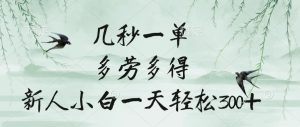 几秒一单
多劳多得
新人小白一天轻松300+